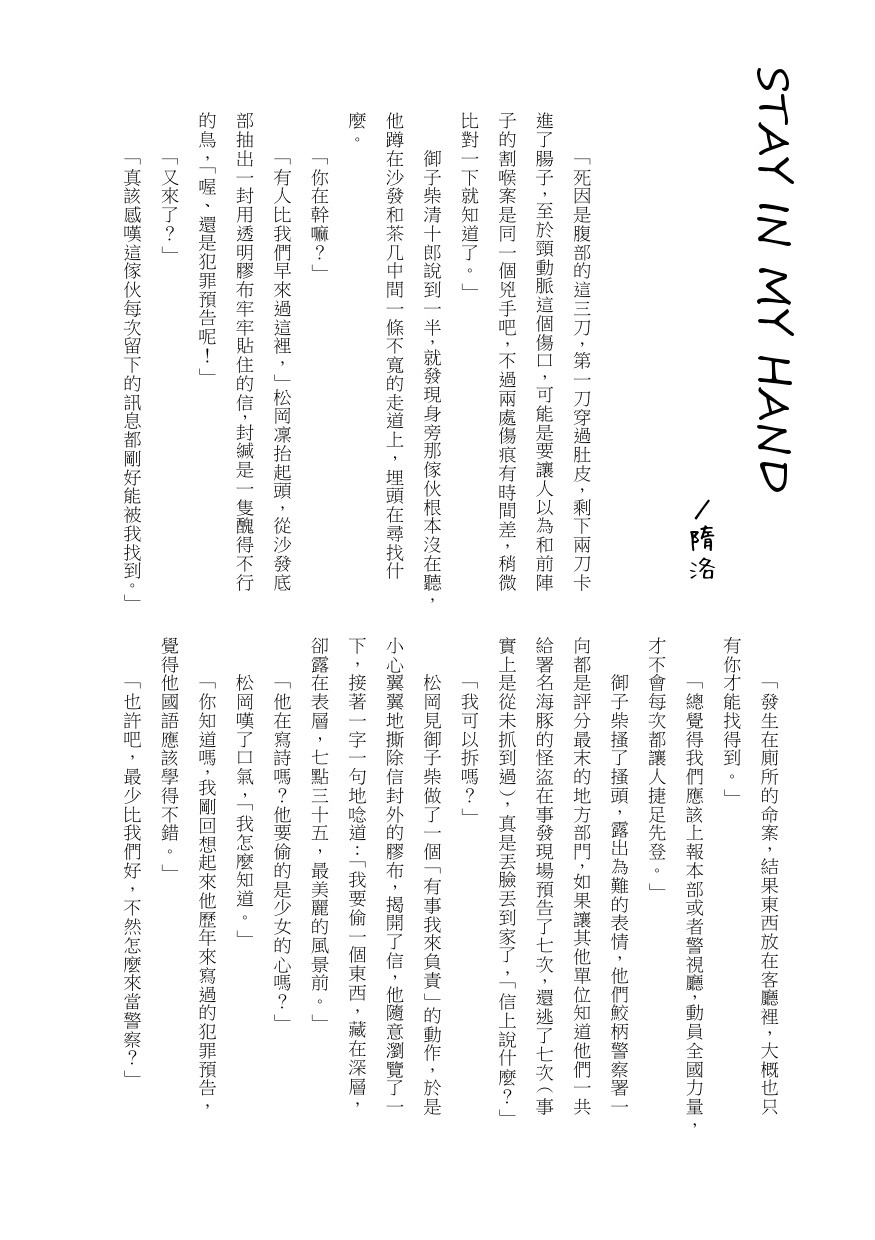 STAY IN MY HAND
/隋洛
「死因是腹部的這三刀，第一刀穿過肚皮，剩下兩刀卡
進了腸子，至於頸動脈這個傷口，可能是要讓人以為和前陣
子的割喉案是同一個兇手吧，不過兩處傷痕有時間差，稍微
比對一下就知道了。」
御子柴清十郎說到一半，就發現身旁那傢伙根本沒在聽，
他蹲在沙發和茶几中間一條不寬的走道上，埋頭在尋找什
麼。
「你在幹嘛？」
「有人比我們早來過這裡，」松岡凜抬起頭，從沙發底
部抽出一封用透明膠布牢牢貼住的信，封緘是一隻醜得不行
的鳥，「喔、還是犯罪預告呢！」
「又來了？」
「真該感嘆這傢伙每次留下的訊息都剛好能被我找到。」
「發生在廁所的命案，結果東西放在客廳裡，大概也只
有你才能找得到。」
「總覺得我們應該上報本部或者警視廳，動員全國力量，
才不會每次都讓人捷足先登。」
御子柴搔了搔頭，露出為難的表情，他們鮫柄警察署一
向都是評分最末的地方部門，如果讓其他單位知道他們一共
給署名海豚的怪盜在事發現場預告了七次，還逃了七次（事
實上是從未抓到過），真是丟臉丟到家了，「信上說什麼？」
「我可以拆嗎？」
松岡見御子柴做了一個「有事我來負責」的動作，於是
小心翼翼地撕除信封外的膠布，揭開了信，他隨意瀏覽了一
下，接著一字一句地唸道：「我要偷一個東西，藏在深層，
卻露在表層，七點三十五，最美麗的風景前。」
「他在寫詩嗎？他要偷的是少女的心嗎？」
松岡嘆了口氣，「我怎麼知道。」
「你知道嗎，我剛回想起來他歷年來寫過的犯罪預告，
覺得他國語應該學得不錯。」
「也許吧，最少比我們好，不然怎麼來當警察？」